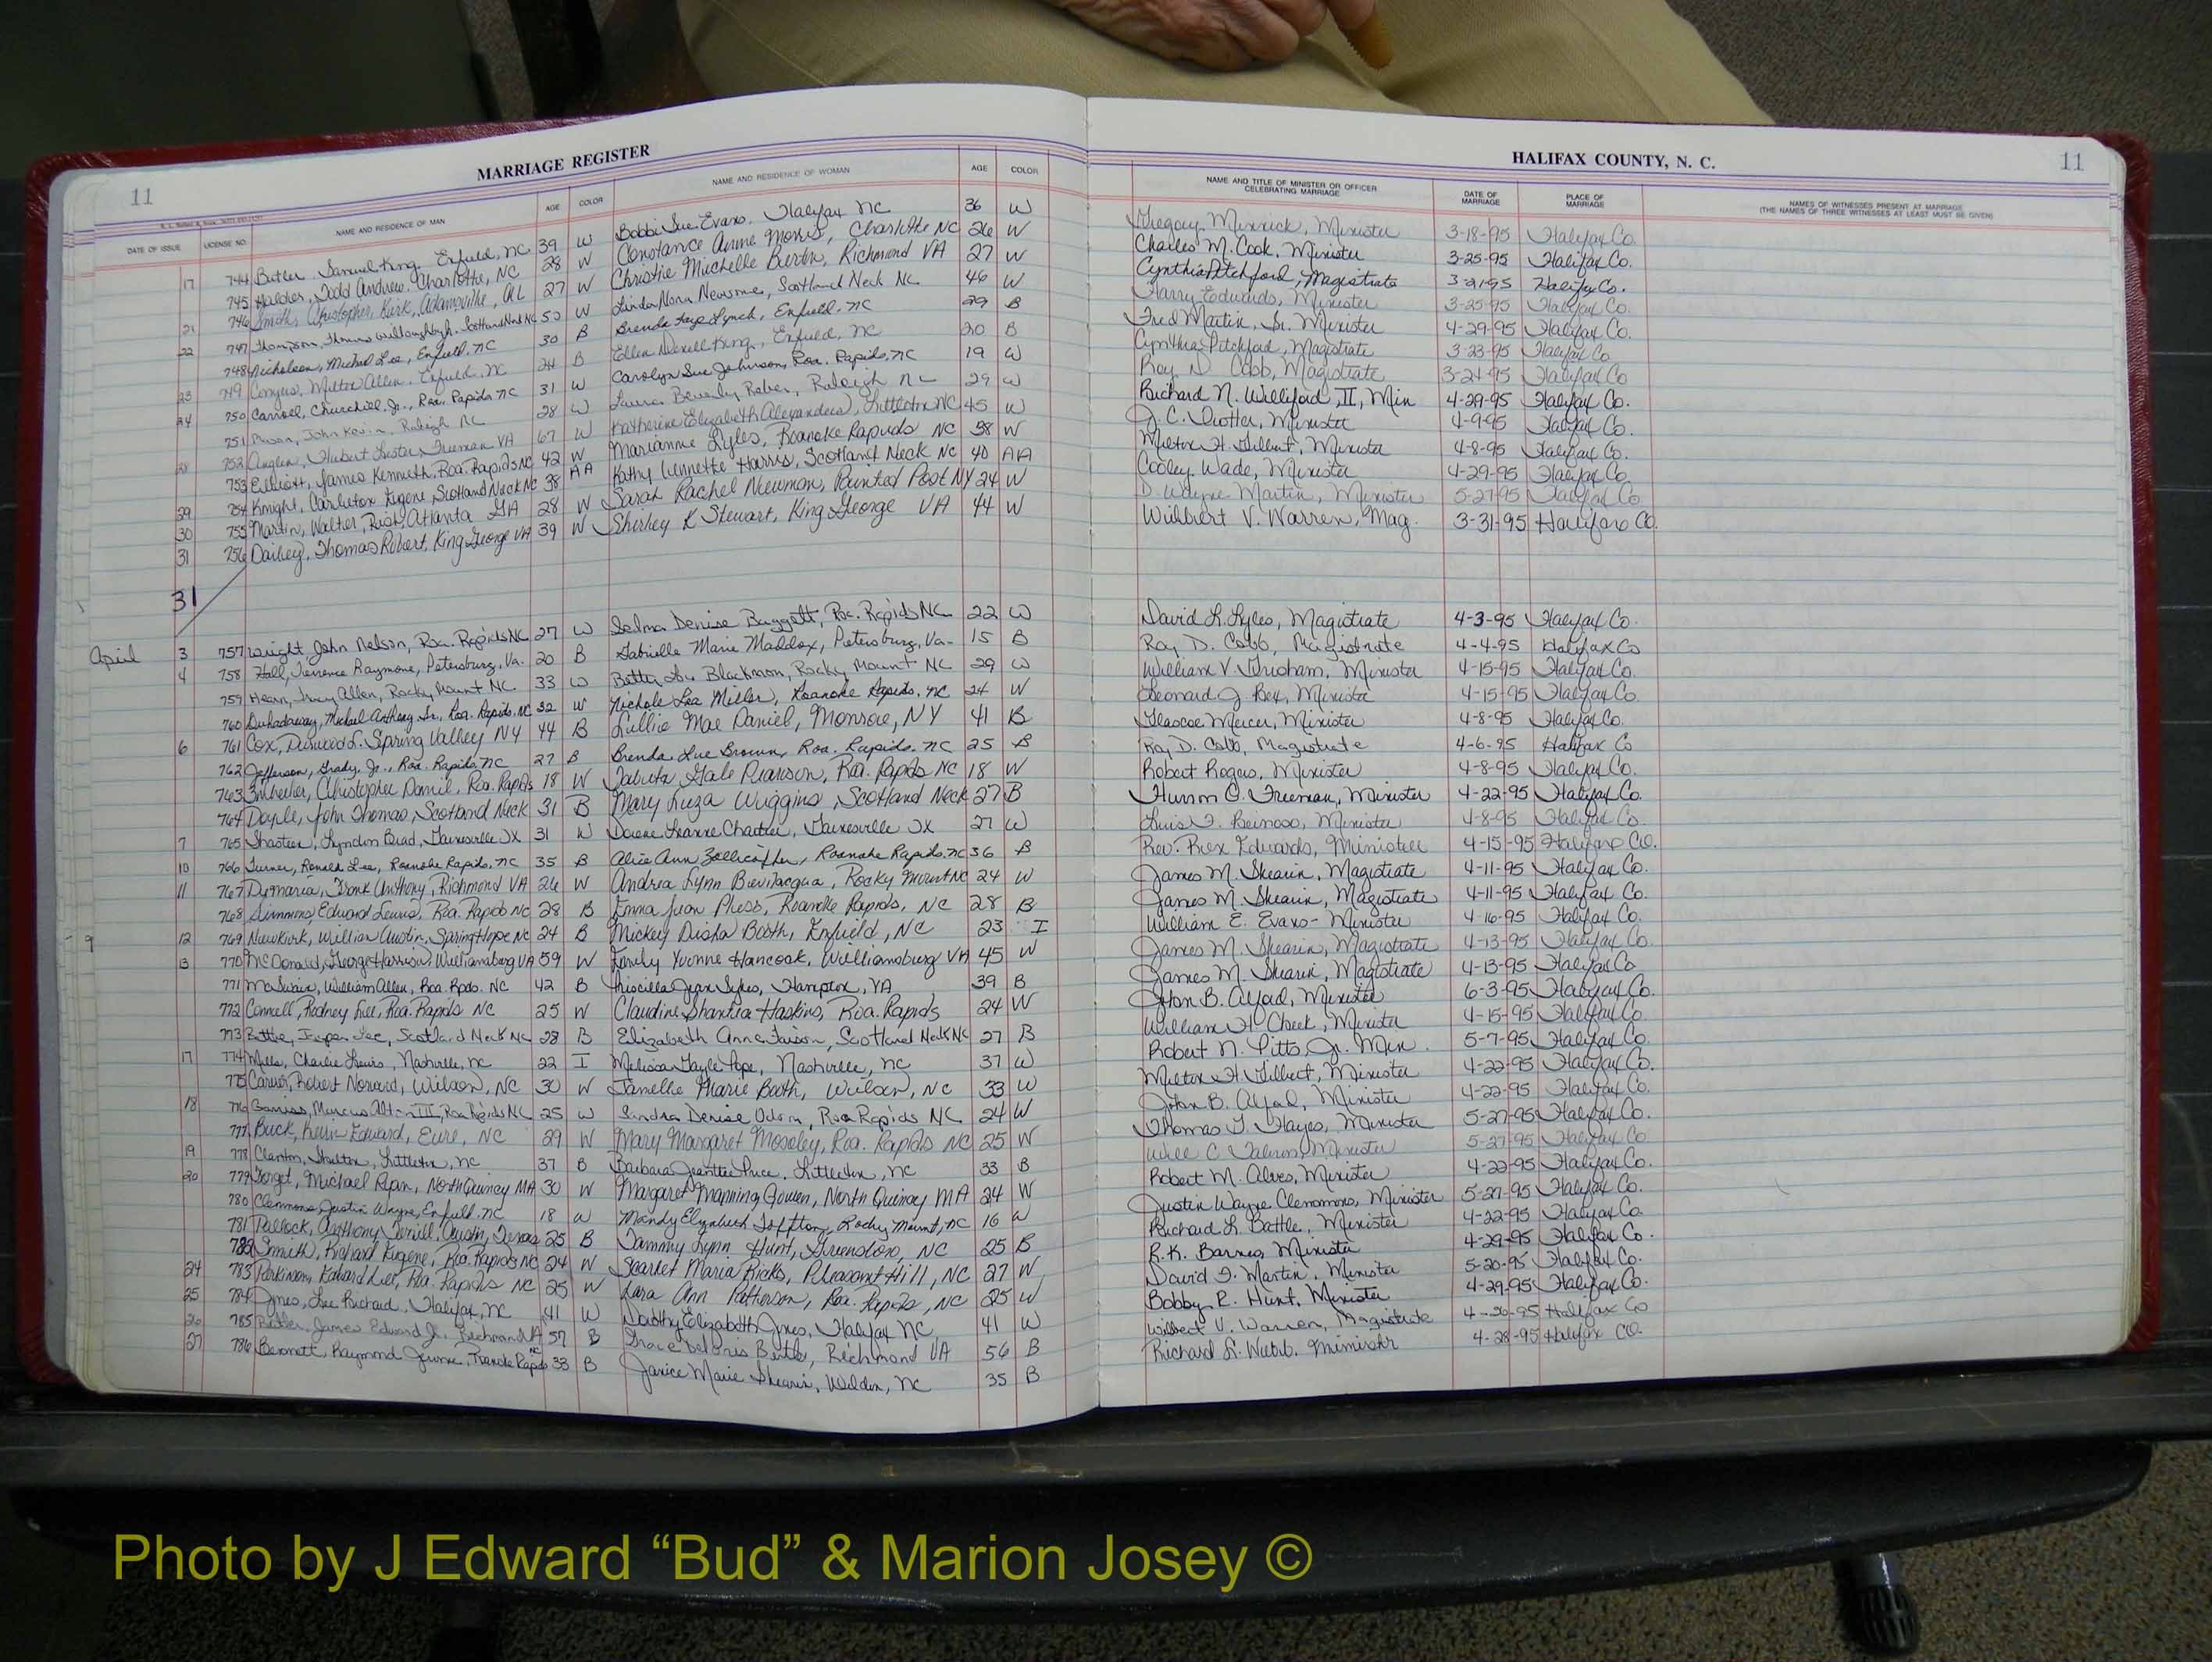 11
MARRIAGE REGISTER
DATE OF ISSUE LICENSE NO. NAME AND RESIDENCE OF MAN AGE COLOR NAME AND RESIDENCE OF WOMAN AGE COLOR
17 744 Butler, Samuel King, Enfield, NC 39 W Bobbi Sue Evans, Halifax NC 36 W
745 Todd Andrew, Charlotte, NC 28 W Constance Anne Morris, Charlotte NC 26 W
746 Smith, Christopher Kirk, Adamsville, AL 27 W Christie Michelle Burton, Richmond VA 27 W
21 747 Thompson, Thomas Willoughby, Scotland Neck NC 50 W Linda Nora Newsome, Scotland Neck NC 46 W
22 748 Nicholson, Michael Lee, Enfield, NC 30 B Brenda Faye Lynch, Enfield, NC 29 B
749 Conyers, Milton Allen, Enfield, NC 24 B Ellen King, Enfield, NC 20 B
23 750 Carroll, Churchill Jr., Roa. Rapids NC 31 W Carolyn Sue Johnson, Roa. Rapids, NC 19 W
24 751 John Kevin, Raleigh NC 28 W Laura Beverly Raleigh NC 29 W
752 Hubert Lester, Freeman VA 67 W Katherine Elizabeth Littleton NC 45 W
28 753 Elliott, James Kenneth, Roa. Rapids NC 42 W Marianne Lyles, Roanoke Rapids NC 38 W
29 754 Knight, Carleton Eugene, Scotland Neck NC 38 AA Kathy Lynnette Harris, Scotland Neck NC 40 AA
30 755 Martin, Walter Rush, Atlanta GA 28 W Sarah Rachel Newman, Painted Post NY 24 W
31 756 Dailey, Thomas Robert, King George VA 39 W Shirley K Stewart, King George VA 44 W
31
April 3 757 Wright, John Nelson, Roa. Rapids NC 27 W Selma Denise Baggett, Roa. Rapids NC 22 W
4 758 Hall, Terrence Raymone, Petersburg, Va. 20 B Gabrielle Marie Maddox, Petersburg, Va- 15 B
759 Hearn, Tracy Allen, Rocky Mount NC 33 W Betty Lou Blackmon, Rocky Mount NC 29 W
760 Michael Anthony Sr., Roa. Rapids, NC 32 W Nichole Lea Miller, Roanoke Rapids, NC 24 W
6 761 Cox, Durwood L. Spring Valley NY 44 B Lillie Mae Daniel, Monroe, NY 41 B
762 Jefferson, Grady Jr., Roa. Rapids NC 27 B Brenda Lue Brown, Roa. Rapids, NC 25 B
763 Christopher Daniel, Roa. Rapids 18 W Tabita Gale Pearson, Roa. Rapids NC 18 W
764 Doyle, John Thomas, Scotland Neck 31 B Mary Liza Wiggins, Scotland Neck 27 B
7 765 Lyndon Brad, Gainesville TX 31 W Leanne Gainesville TX 27 W
10 766 Turner, Ronald Lee, Roanoke Rapids, NC 35 B Alice Ann Zollicoffer, Roanoke Rapids, NC 36 B
11 767 Demaria, Frank Anthony, Richmond VA 26 W Andrea Lynn Bevilacqua, Rocky Mount NC 24 W
768 Simmons, Edward Lewis, Roa. Rapids NC 28 B Emma Jean Pless, Roanoke Rapids, NC 28 B
9 12 769 Newkirk, William Austin, Spring Hope NC 24 B Mickey Disha Booth, Enfield, NC 23 I
13 770 McDonald, George Harrison, Williamsburg VA 59 W Emily Yvonne Hancock, Williamsburg VA 45 W
771 McSwain, William Allen, Roa. Rpds. NC 42 B Priscilla Jean Sykes, Hampton, VA 39 B
772 Connell, Rodney Lee, Roa. Rapids NC 25 W Claudine Shantia Haskins, Roa. Rapids 24 W
773 Battle, Jasper Lee, Scotland Neck NC 28 B Elizabeth Anne Faison, Scotland Neck NC 27 B
17 774 Mills, Charlie Louis, Nashville, NC 22 I Melissa Gayle Pope, Nashville, NC 37 W
775 Carver, Robert Norwood, Wilson, NC 30 W Janelle Marie Booth, Wilson, NC 33 W
18 776 Garriss, Marcus Alton III, Roa Rapids NC 25 W Sandra Denise Odom, Roa Rapids NC 24 W
777 Buck, Kevin Edward, Eure, NC 29 W Mary Margaret Moseley, Roa. Rapids NC 25 W
19 778 Clanton, Shelton, Littleton, NC 37 B Barbara Jeanttie Price, Littleton, NC 33 B
20 779 Forget, Michael Ryan, North Quincy MA 30 W Margaret Manning Gowen, North Quincy MA 24 W
780 Clemmons, Justin Wayne, Enfield, NC 18 W Mandy Elizabeth Rocky Mount, NC 16 W
781 Pollock, Anthony Terrill, Austin, Texas 25 B Tammy Lynn Hunt, Greensboro, NC 25 B
782 Smith, Richard Eugene, Roa. Rapids NC 24 W Scarlet Maria Ricks, Pleasant Hill, NC 27 W
24 783 Parkinson, Edward Lee, Roa. Rapids NC 25 W Kara Ann Patterson, Roa. Rapids, NC 25 W
25 784 Jones, Lee Richard, Halifax, NC 41 W Dorothy Elizabeth Jones, Halifax NC 41 W
26 785 James Edward Jr., Richmond VA 57 B Grace Richmond VA 56 B
27 786 Bennett, Raymond Jerome, Roanoke Rapids NC 33 B Janice Marie Shearin, Weldon, NC 35 B
HALIFAX COUNTY, N. C.
11
NAME AND TITLE OF MINISTER OR OFFICER CELEBRATING MARRIAGE DATE OF MARRIAGE PLACE OF MARRIAGE NAMES OF WITNESSES PRESENT AT MARRIAGE
(THE NAMES OF THREE WITNESSES AT LEAST MUST BE GIVEN)
Gregory Merrick, Minister 3-18-95 Halifax Co.
Charles M. Cook, Minister 3-25-95 Halifax Co.
Cynthia Pitchford, Magistrate 3-21-95 Halifax Co.
Harry Edwards, Minister 3-25-95 Halifax Co.
Fred Martin, Sr. Minister 4-29-95 Halifax Co.
Cynthia Pitchford, Magistrate 3-23-95 Halifax Co
Roy D. Cobb, Magistrate 3-24-95 Halifax Co
Richard N. Williford, II, Min 4-29-95 Halifax Co.
J. C. Minister 4-9-95 Halifax Co.
Milton H. Gilbert, Minister 4-8-95 Halifax Co.
Cooley Wade, Minister 4-29-95 Halifax Co
D. Wayne Martin, Minister 5-27-95 Halifax Co
Wilbert V. Warren, Mag. 3-31-95 Halifax Co.
David L. Lyles, Magistrate 4-3-95 Halifax Co.
Roy D. Cobb, Magistrate 4-4-95 Halifax Co
William V. Grisham, Minister 4-15-95 Halifax Co.
Leonard J. Rex, Minister 4-15-95 Halifax Co.
Glascoe Mercer, Minister 4-8-95 Halifax Co.
Roy D. Cobb, Magistrate 4-6-95 Halifax Co
Robert Rogers, Minister 4-8-95 Halifax Co.
O. Freeman, Minister 4-22-95 Halifax Co.
Luis F. Reinoso, Minister 4-8-95 Halifax Co.
Rev. Rex Edwards, Minister 4-15-95 Halifax Co.
James M. Shearin, Magistrate 4-11-95 Halifax Co.
James M. Shearin, Magistrate 4-11-95 Halifax Co.
William E. Evans- Minister 4-16-95 Halifax Co.
James M. Shearin, Magistrate 4-13-95 Halifax Co.
James M. Shearin, Magistrate 4-13-95 Halifax Co
John B. Alford, Minister 6-3-95 Halifax Co.
William H. Cheek, Minister 4-15-95 Halifax Co.
Robert N. Pitts, Jr. Min. 5-7-95 Halifax Co.
Milton H. Gilbert, Minister 4-22-95 Halifax Co.
John B. Alford, Minister 4-22-95 Halifax Co.
Thomas T. Hayes, Minister 5-27-95 Halifax Co.
Will C. Minister 5-27-95 Halifax Co
Robert M. Alves, Minister 4-22-95 Halifax Co.
Justin Wayne Clemmons, Minister 5-27-95 Halifax Co.
Richard L. Battle, Minister 4-22-95 Halifax Co.
R.K. Barnes, Minister 4-29-95 Halifax Co.
David F. Martin, Minister 5-20-95 Halifax Co.
Bobby R. Hunt, Minister 4-29-95 Halifax Co.
Wilbert V. Warren, Magistrate 4-26-95 Halifax Co
Richard L. Webb, Minister 4-28-95 Halifax Co.
Photo by J Edward “Bud” & Marion Josey ©